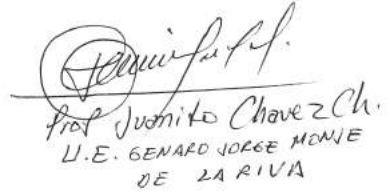 Prof Juanito Chavez Ch.
U.E. GENARO JORGE MONJE
DE LA RIVA